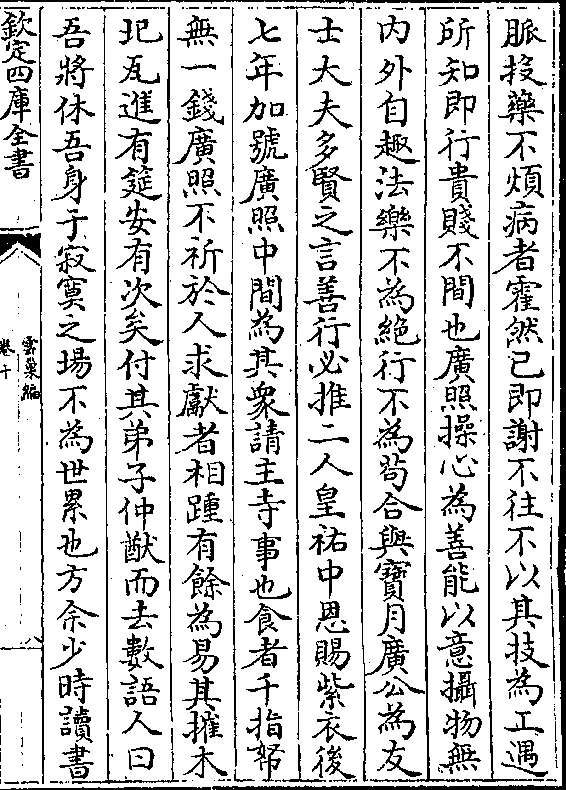 脈投藥不煩病者霍然已即謝不往不以其技為工遇
所知即行貴賤不間也廣照操心為善能以意攝物無
内外自趣法樂不為絶行不為苟合與寶月廣公為友
士大夫多賢之言善行必推二人皇祐中恩賜紫衣後
七年加號廣照中間為其衆請主寺事也食者千指帑
無一錢廣照不祈於人求獻者相踵有餘為易其摧木
圯瓦進有筵安有次矣付其弟子仲猷而去數語人曰
吾將休吾身于寂寞之場不為世累也方余少時讀書
欽定四庫全書
雲巢編
卷十
八